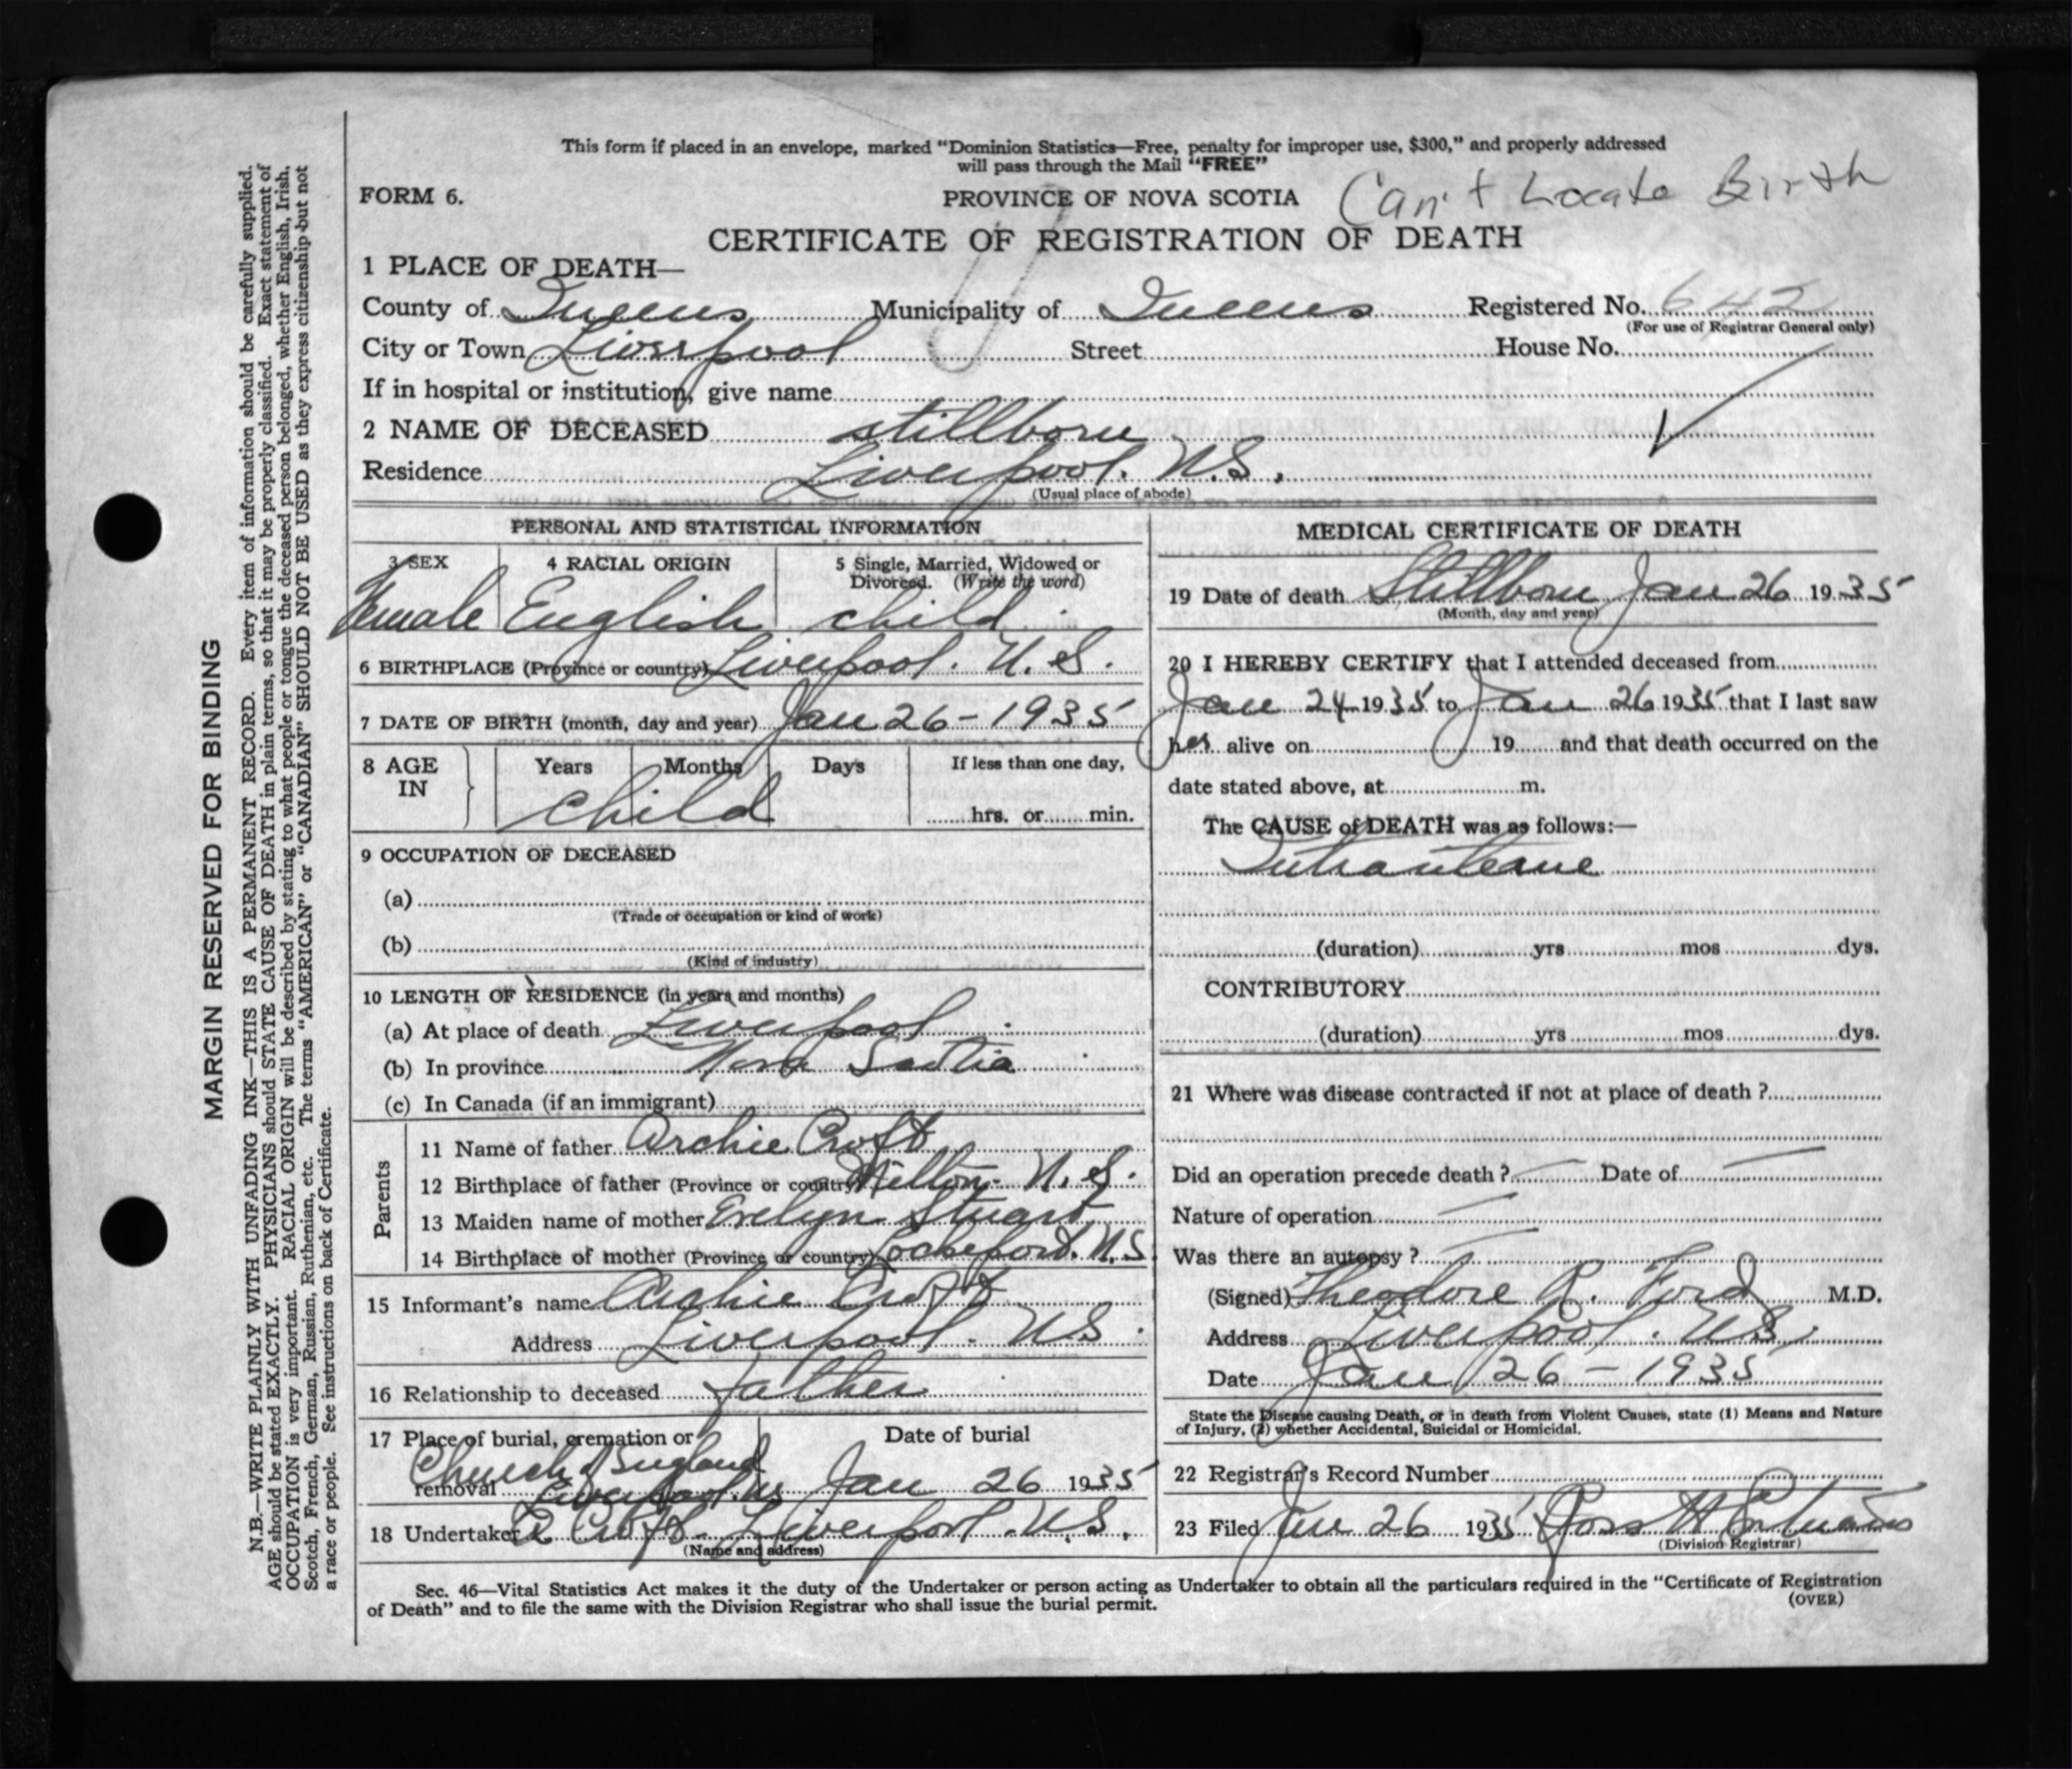 This form if placed in an envelope, marked "Dominion Statistics—Free, penalty for improper use, $300," and properly addressed
will pass through the Mail "FREE"
FORM 6.
PROVINCE OF NOVA SCOTIA Can't Locate Birth
CERTIFICATE OF REGISTRATION OF DEATH
1 PLACE OF DEATH—
County of Queens Municipality of Queens Registered No. 642
(For use of Registrar General only)
City or Town Liverpool Street House No.
If in hospital or institution, give name
2 NAME OF DECEASED stillborn
Residence Liverpool. N.S.
(Usual place of abode)
PERSONAL AND STATISTICAL INFORMATION
3 SEX 4 RACIAL ORIGIN 5 Single, Married, Widowed or
Divorced. (Write the word)
Female English child
6 BIRTHPLACE (Province or country) Liverpool. N.S.
7 DATE OF BIRTH (month, day and year) Jan 26 - 1935
8 AGE IN Years Months Days If less than one day,
child hrs. or min.
9 OCCUPATION OF DECEASED
(a)
(Trade or occupation or kind of work)
(b)
(Kind of industry)
10 LENGTH OF RESIDENCE (in years and months)
(a) At place of death Liverpool
(b) In province Nova Scotia
(c) In Canada (if an immigrant)
Parents
11 Name of father Archie Croft
12 Birthplace of father (Province or country) Milton. N.S.
13 Maiden name of mother Evelyn Stuart
14 Birthplace of mother (Province or country) N.S.
15 Informant's name Archie Croft
Address Liverpool. N.S.
16 Relationship to deceased father
17 Place of burial, cremation or Date of burial
Church of England
removal Liverpool. NS Jan 26 1935
18 Undertaker A Croft - Liverpool. N.S.
(Name and address)
MEDICAL CERTIFICATE OF DEATH
19 Date of death Stillborn Jan 26 1935
(Month, day and year)
20 I HEREBY CERTIFY that I attended deceased from
Jan 24 1935 to Jan 26 1935 that I last saw
her alive on 19 and that death occurred on the
date stated above, at m.
The CAUSE of DEATH was as follows:—
Intrauterine
(duration) yrs mos dys.
CONTRIBUTORY
(duration) yrs mos dys.
21 Where was disease contracted if not at place of death ?
Did an operation precede death ? Date of
Nature of operation
Was there an autopsy ?
(Signed) Theodore R. Ford M.D.
Address Liverpool. N.S.
Date Jan 26 - 1935
State the Disease causing Death, or in death from Violent Causes, state (1) Means and Nature
of Injury, (2) whether Accidental, Suicidal or Homicidal.
22 Registrar's Record Number
23 Filed Jan 26 1935
(Division Registrar)
Sec. 46—Vital Statistics Act makes it the duty of the Undertaker or person acting as Undertaker to obtain all the particulars required in the "Certificate of Registration
of Death" and to file the same with the Division Registrar who shall issue the burial permit.
(OVER)
MARGIN RESERVED FOR BINDING
N.B.—WRITE PLAINLY WITH UNFADING INK—THIS IS A PERMANENT RECORD. Every item of information should be carefully supplied.
AGE should be stated EXACTLY. PHYSICIANS should STATE CAUSE OF DEATH in plain terms, so that it may be properly classified. Exact statement of
OCCUPATION is very important. RACIAL ORIGIN will be described by stating to what people or tongue the deceased person belonged, whether English, Irish,
Scotch, French, German, Russian, Ruthenian, etc. The terms "AMERICAN" or "CANADIAN" SHOULD NOT BE USED as they express citizenship but not
a race or people. See instructions on back of Certificate.